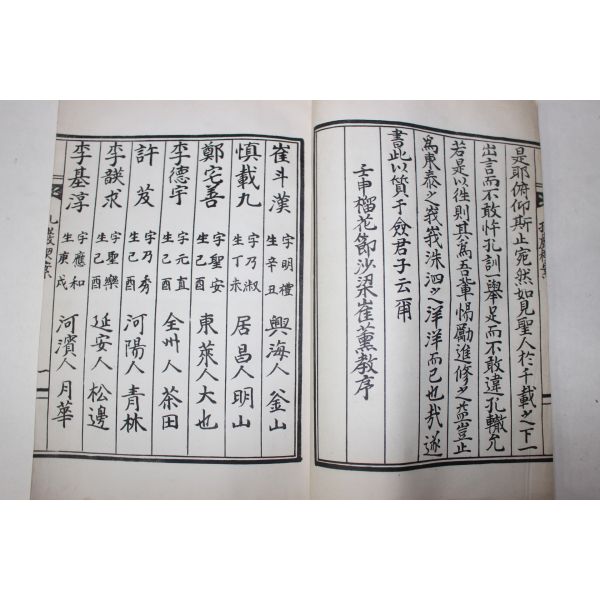 是耶俯仰斯止宛然如見聖人於千載之下一
出言而不敢忤孔訓一舉足而不敢違孔轍允
若是以徃則其爲吾輩惕勵進修之益豈止
爲東泰之峩峩洙泗之洋洋而已也哉遂
書此以質于僉君子云爾
壬申榴花節沙梁崔薰敎序
崔斗漢 字明禮 生辛丑 興海人 釜山
愼載九 字乃淑 生丁未 居昌人 明山
鄭宅善 字聖安 生己酉 東萊人 大也
李德宇 字元直 生己酉 全州人 茶田
許芨 字乃秀 生己酉 河陽人 青林
李談求 字聖樂 生己酉 延安人 松邊
李基淳 字應和 生庚戌 河濱人 月華
一